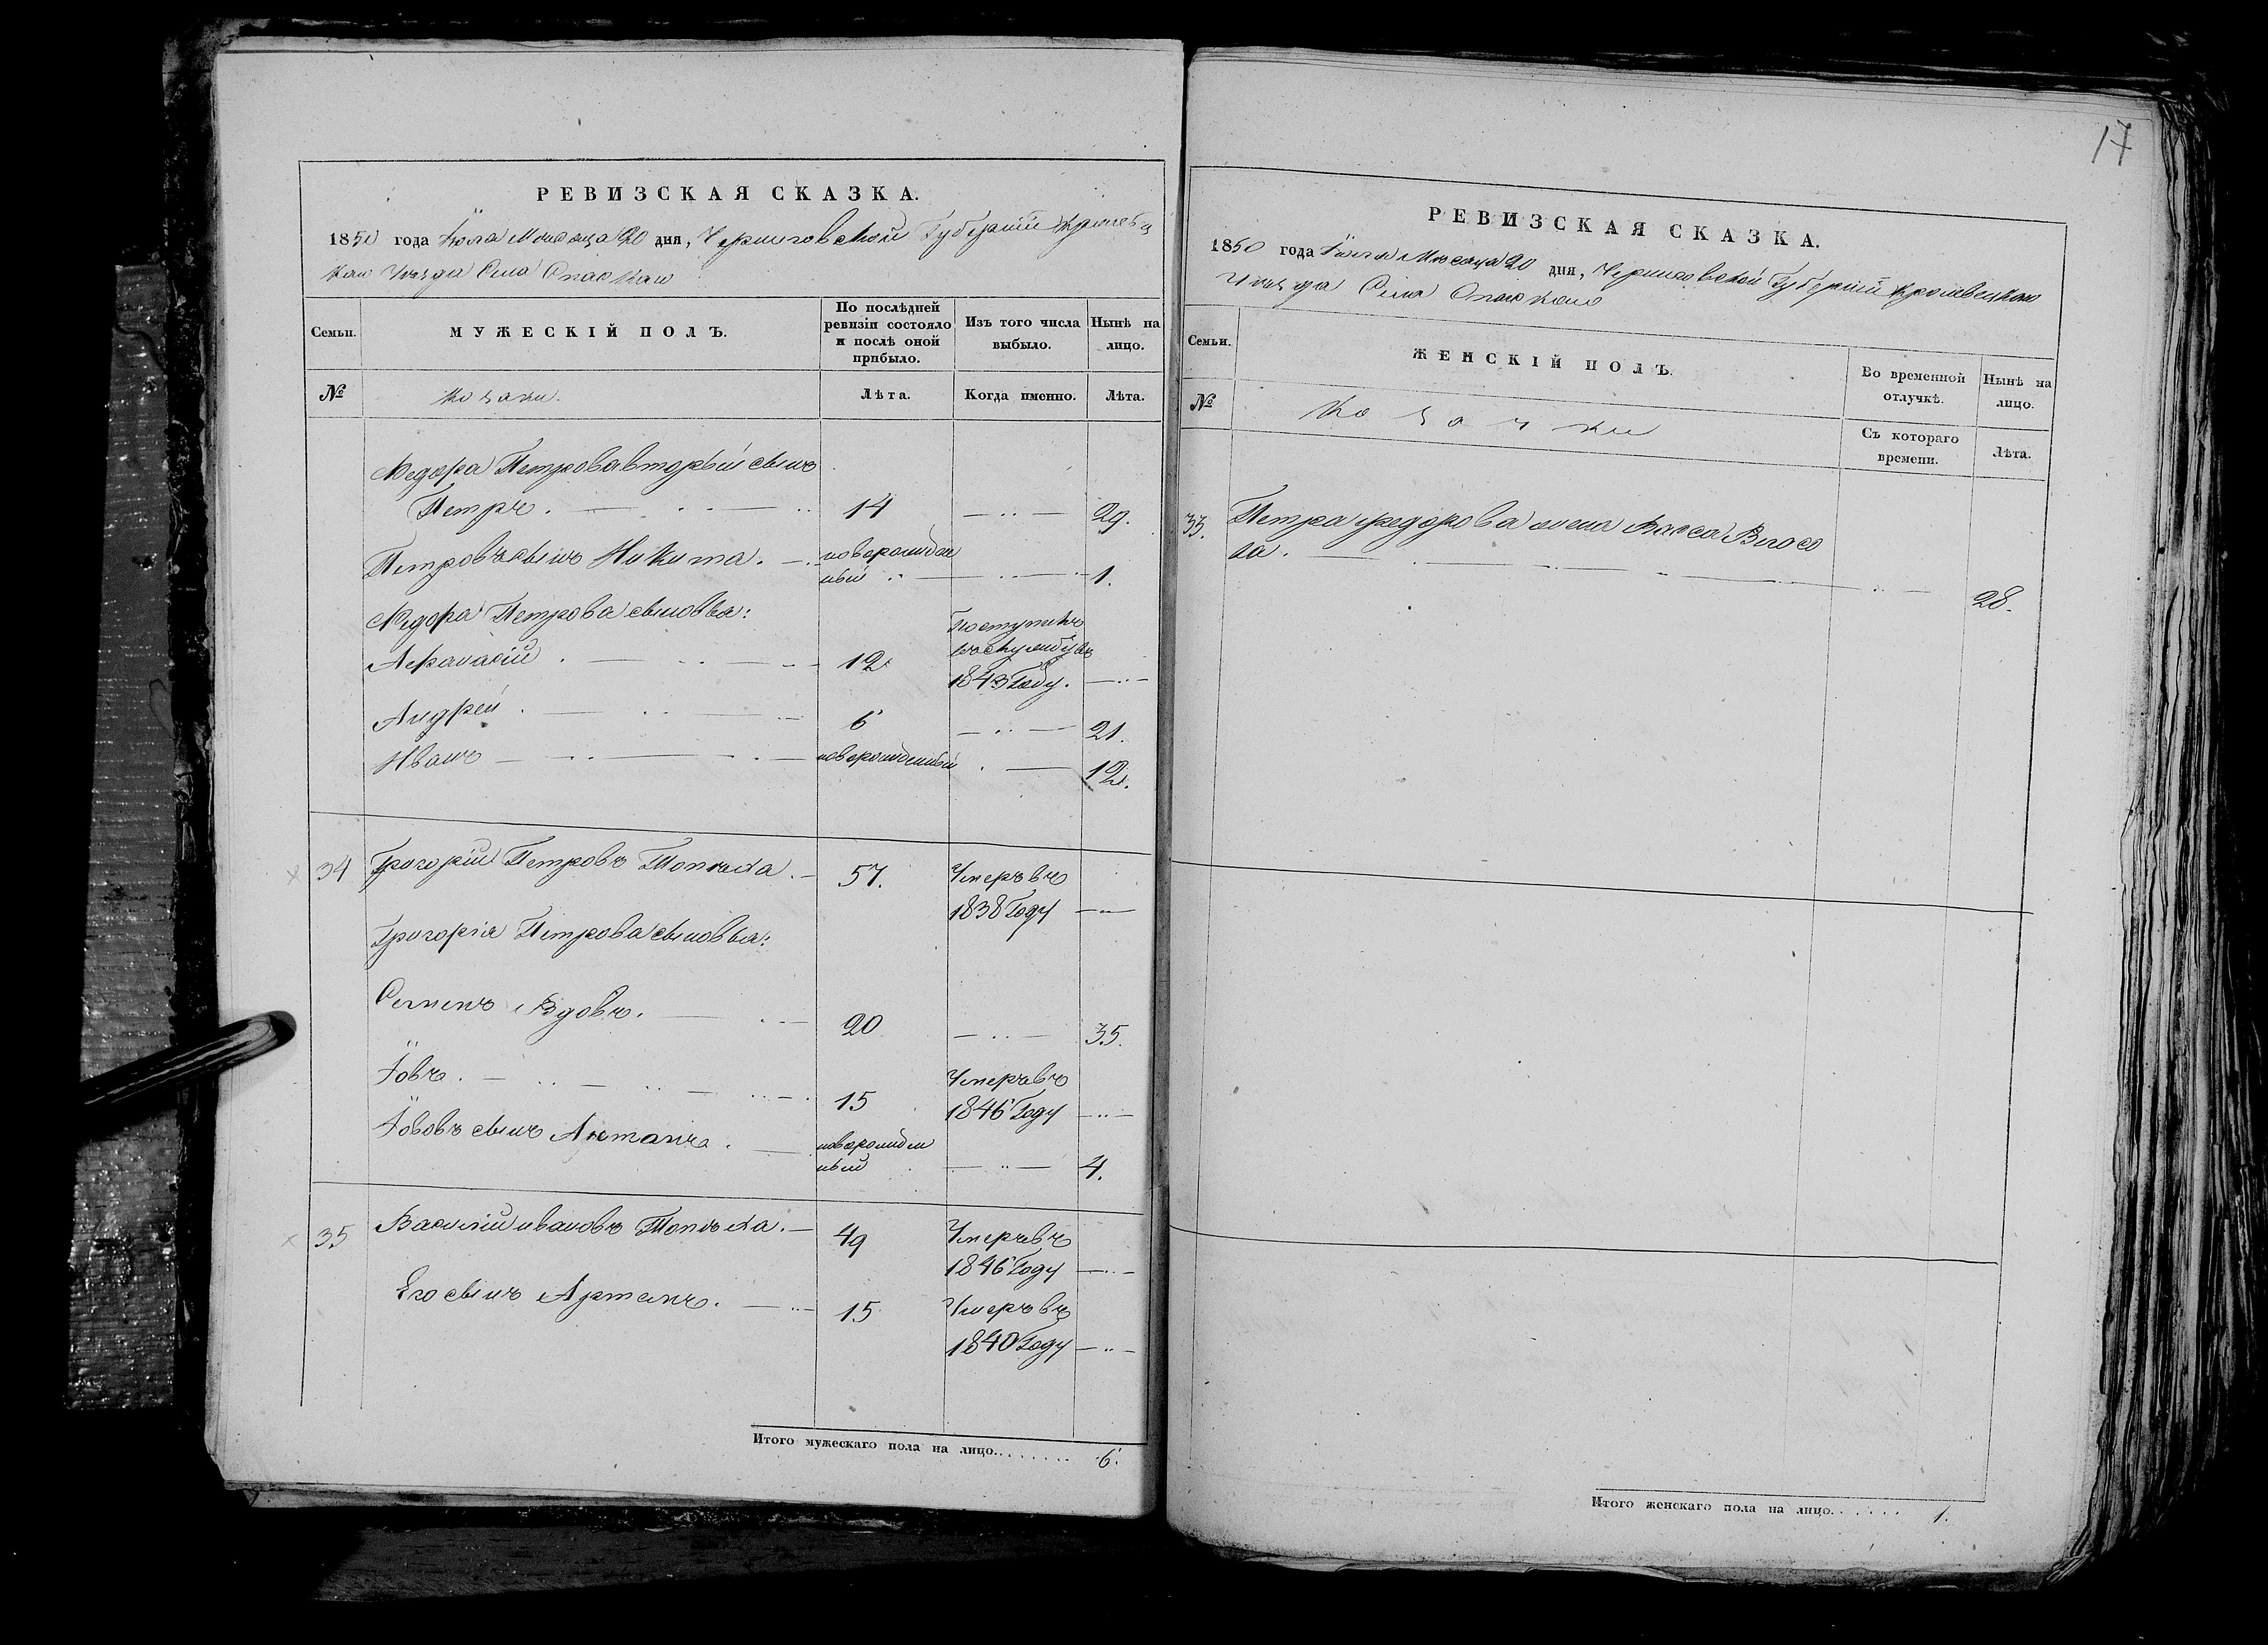 17
РЕВИЗСКАЯ СКАЗКА.
1850 года Іюля Месяца 20 дня, Черниговской Губерніи Кролевец
каго Уезда Села Спаскаго
Семьи.
МУЖЕСКІЙ ПОЛЪ.
По послѣдней ревизіи состояло и послѣ оной прибыло.
Изъ того числа выбыло.
Нынѣ на лицо.
№
козаки.
Лѣта.
Когда именно.
Лѣта.
Федора Петрова вторый сынъ
Петръ. 14 29.
Петровъ сынъ Никита. новорожден
ный 1.
Федора Петрова сыновья:
Поступилъ
Афанасій 12
1843 Году.
Андрей 6 21.
Иванъ новорожденный 12.
34 Григорій Петровъ 57. Умеръ въ
1838 Году
Григорія Петрова сыновья:
Семенъ Вдовъ. 20 35.
Іовъ. 15 Умеръ въ
1846 Году
Іововъ сынъ новорожден
ный 4.
35 Василій Ивановъ 49 Умеръ въ
1846 Году
Его сынъ 15 Умеръ въ
1840 Году
Итого мужескаго пола на лицо........ 6.
РЕВИЗСКАЯ СКАЗКА.
1850 года Іюля Месяца 20 дня, Черниговской Губерніи Кролевецкаго
Уезда Села Спаскаго
Семьи.
ЖЕНСКІЙ ПОЛЪ.
Во временной отлучкѣ.
Нынѣ на лицо.
№
козачки
Съ котораго времени.
Лѣта.
33. Петра Федорова жена Васса
28.
Итого женскаго пола на лицо....... 1.